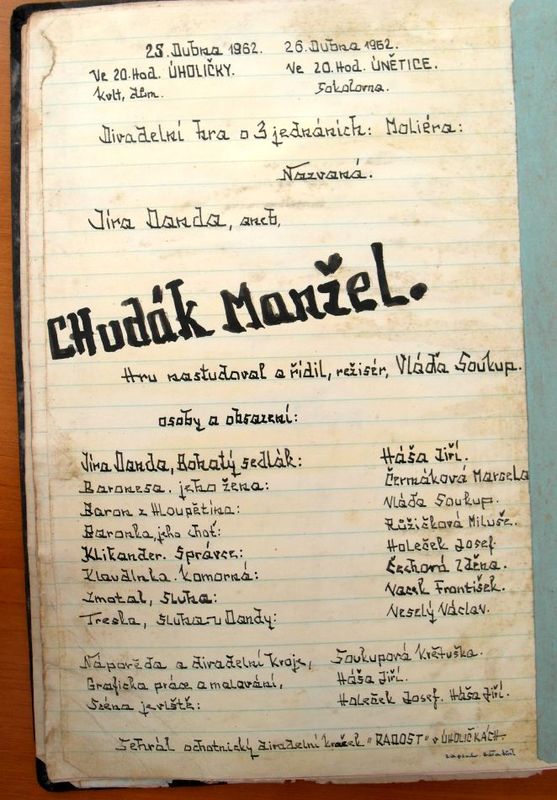 25. Dubna 1962. 26. Dubna 1962.
Ve 20. Hod. ÚHOLIČKY. Ve 20. Hod. ÚNĚTICE.
Kult, dům. Sokolovna.
Divadelní hra o 3 jednáních: Moliéra:
Nazvaná.
Jíra Danda, aneb,
CHudák Manžel.
Hru nastudoval a řídil, režisér, Vláďa Soukup.
osoby a obsazení:
Jíra Danda, Bohatý sedlák: Háša Jiří.
Baronesa. jeho žena: Čermáková Marcela
Baron z Hloupětína: Vláďa Soukup.
Baronka, jeho choť: Růžičková Miluše.
Klikander. Správce: Holeček Josef
Klaudinka. komorná: Čechová Zdena.
Zmotal, sluha: Vacek František.
Treska, sluha u Dandy: Veselý Václav.
Nápověda a divadelní Kroje, Soukupová Květuška.
Grafička práce a malování, Háša Jiří.
Scéna jeviště: Holeček Josef. Háša Jiří.
Sehrál ochotnický divadelní kroužek "RADOST" v ÚHOLIČKÁCH.